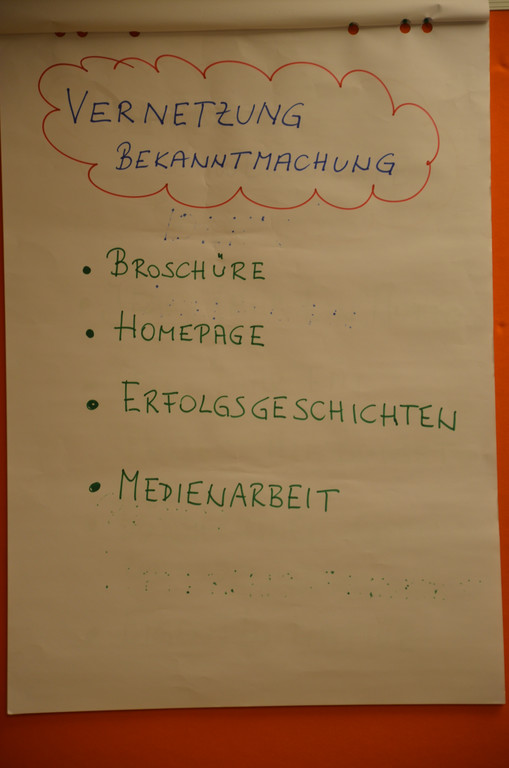 VERNETZUNG
BEKANNTMACHUNG
• BROSCHÜRE
• HOMEPAGE
• ERFOLGSGESCHICHTEN
• MEDIENARBEIT